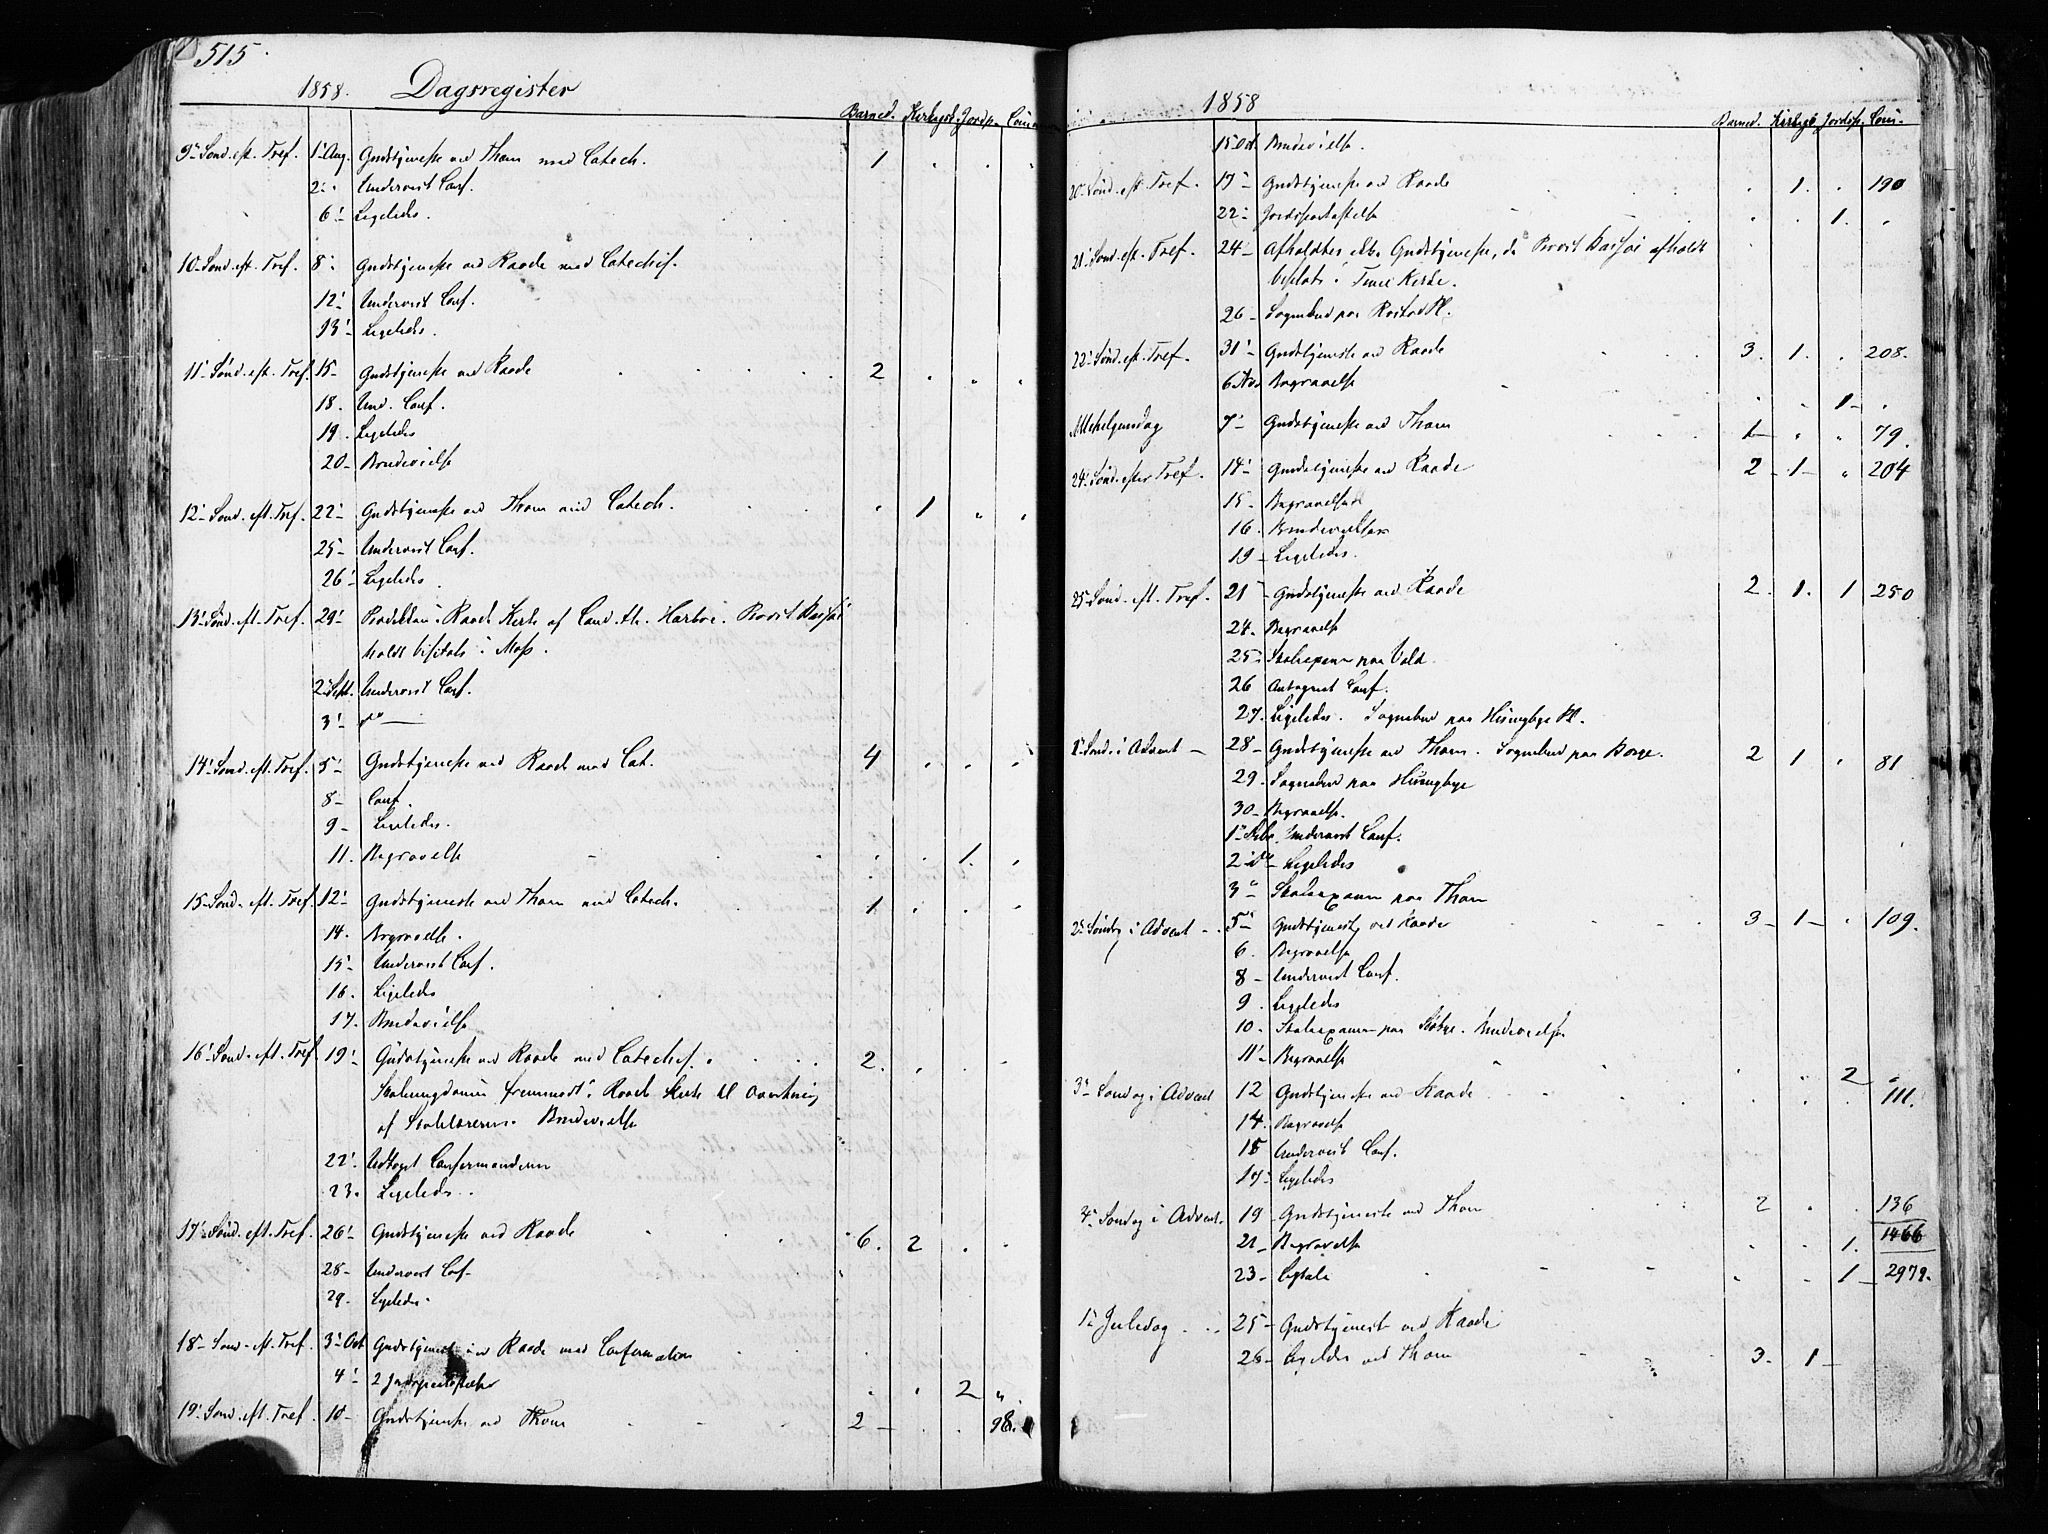 515.
1858. Dagsregister
Barned. Kirkegd. Jordp. Com
9' Sønd. eft. Tref. 1' Aug. Gudstjeneste ved Thom med Catech. 1
2' Underviist Conf.
6' Ligeledes.
10' Sønd. eft. Tref. 8' Gudstjeneste ved Raade med Catechis.
12' Underviist Conf.
13' Ligeledes.
11' Sønd. eft. Tref. 15 Gudstjeneste ved Raade 2
18. Und. Conf.
19. Ligeledes
20 Brudevielse
12' Sønd. eft. Tref. 22' Gudstjeneste ved Thom med Catech. 1
25 Underviist Conf.
26' Ligeledes
13' Sønd. eft. Tref. 29' i Raade Kirke af Cand. th. Harboe. Provst
holdt Visitats i Moss.
2' Sept. Underviist Conf.
3' do
14' Sønd. eft. Tref. 5' Gudstjeneste ved Raade med Cat. 4
8 Conf.
9 Ligeledes.
11. Begravelse 1.
15 Sønd. eft. Tref. 12' Gudstjeneste ved Thom med Catech. 1
14. Begravelse.
15' Underviist Conf.
16. Ligeledes
17. Brudevielse
16' Sønd. eft. Tref. 19' Gudstjeneste ved Raade med Catechis. 2.
Skoleungdommen fremmødt i Raade Kirke til
af Skolelærerne. Brudevielse
22' Udtaget Confirmanderne
23. Ligeledes.
17' Sønd. eft. Tref. 26' Gudstjeneste ved Raade 6. 2
28 Underviist Conf
29. Ligeledes.
18' Sønd. eft. Tref. 3' Oct Gudstjeneste ved Raade med Confirmation
4' 2 Jordpaakastelser 2
19' Sønd. eft. Tref. 10 Gudstjeneste ved Thom 2 98.
1858
Barned. Kirkegd Jordp. Com.
15 Oct. Brudevielse.
20' Sønd. eft. Tref. 17 Gudstjeneste ved Raade 1. 190
22 Jordpaakastelse 1.
21' Sønd. eft. Tref. 24 Afholdtes ikke Gudstjeneste, da Provst afholdt
Visitats i Kirke.
26 Sognebud paa Pl.
22' Sønd. eft. Tref. 31' Gudstjeneste ved Raade 3. 1. 208.
6 Nov Begravelse 1
Allehelgensdag 7 Gudstjeneste ved Thom 1 79.
24' Sønd. efter Tref. 14' Gudstjeneste ved Raade 2 1 204
15 Begravelse
16. Brudevielse
19 Ligeledes.
25' Sønd. eft. Tref. 21 Gudstjeneste ved Raade 2. 1. 1 250
24. Begravelse
25 Skoleexamen paa Vold.
26 Antegnet Conf.
27. Ligeledes. Sognebud paa Husebye Pl.
1' Sønd. i Advent 28 Gudstjeneste ved Thom. Sognebud paa Borge. 2 1 81
29. Sognebud paa Husebye
30 Begravelse.
1' Decbr. Underviist Conf.
2 do Ligeledes
3' Skoleexamen paa Thom
2' Søndag i Advent 5' Gudstjeneste ved Raade 3 1 109.
6. Begravelse
8 Underviist Conf.
9. Ligeledes
10. Skoleexamen paa Brudevielse
11' Begravelse 2
3' Søndag i Advent 12 Gudstjeneste ved Raade 111.
14. Begravelse
15 Underviist Conf.
17 Ligeledes
4' Søndag i Advent. 19 Gudstjeneste ved Thom 2 136
21 Begravelse 1. 1466
23 1 2979.
1' Juledag 25 Gudstjeneste ved Raade
26 Ligeledes ved Thom 3. 1